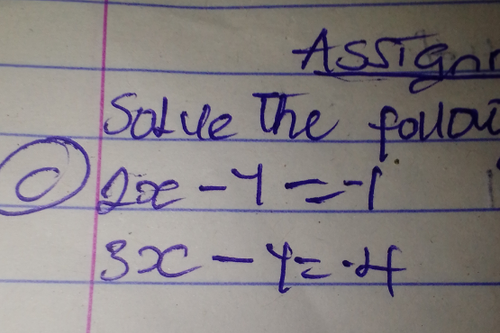 Assign
Solve the follow
c 2x - y = -1
3x - y = -4